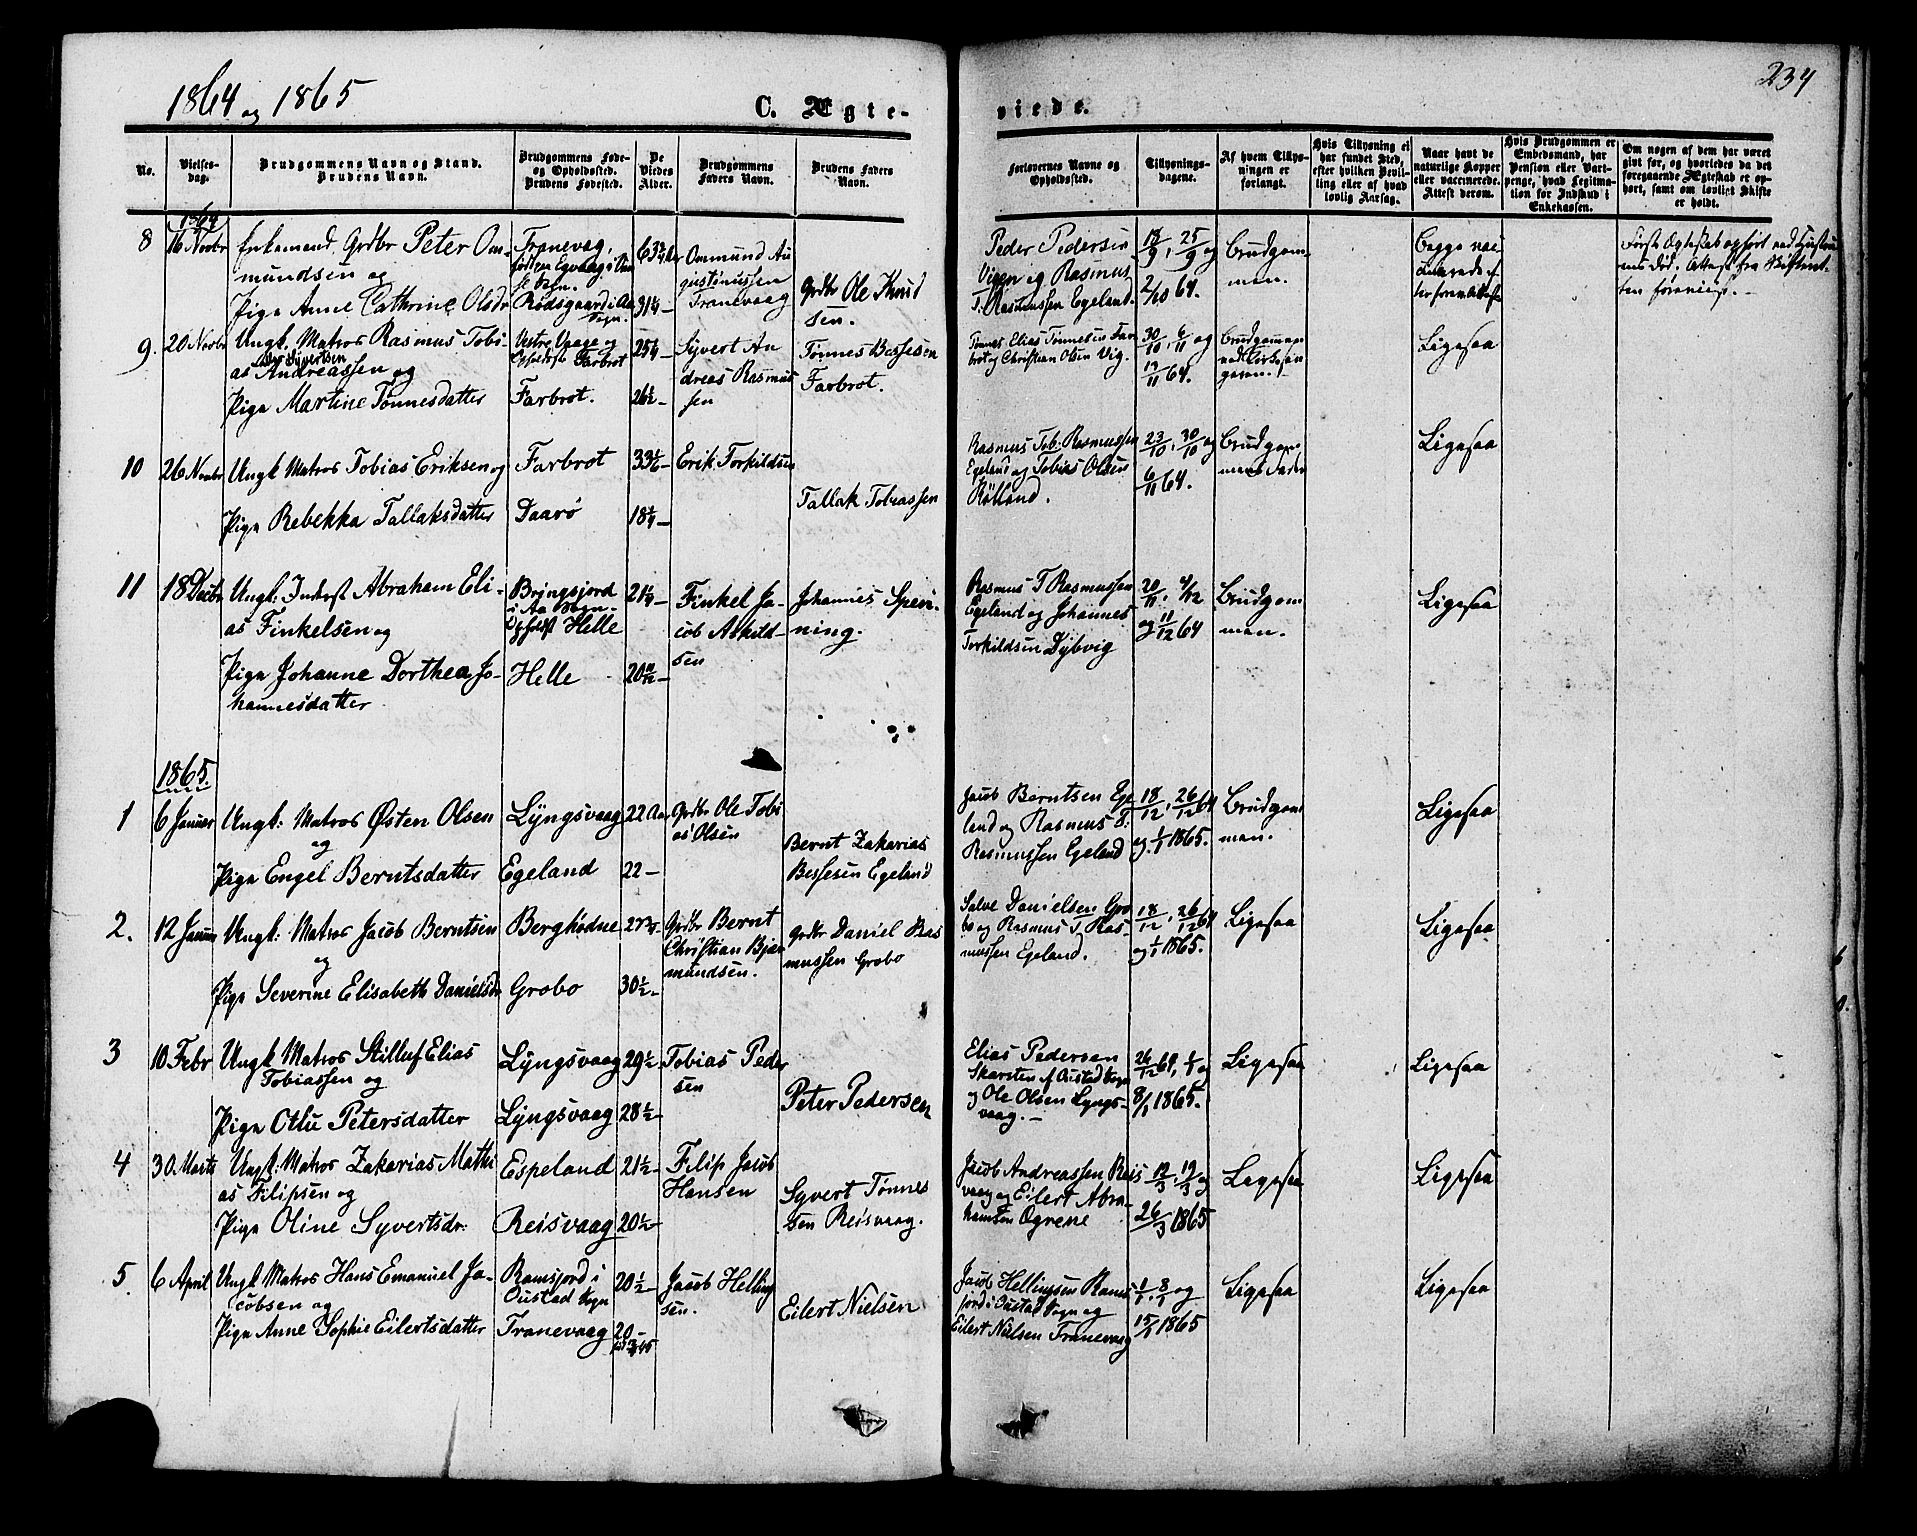 1864 og 1865
C. Ægte-
viede.
234
No.
Vielses-
dag.
Brudgommens Navn og Stand.
Brudens Navn.
Brudgommens Føde-
og Opholdssted.
Brudens Fødested.
De
Viedes
Alder.
Brudgommens
Faders Navn.
Brudens Faders
Navn.
Forlovernes Navne og
Opholdssted.
Tillysnings-
dagene.
Af hvem Tillys-
ningen er
forlangt.
Hvis Tillysning ei
har fundet Sted,
efter hvilken Bevil-
ling eller af hvad
lovlig Aarsag.
Naar havt de
naturlige Kopper
eller vaccinerede.
Attest derom.
Hvis Brudgommen er
Embedsmand, har
Pension eller Vart-
penge, hvad Legitima-
tion for Indskud i
Enkekassen.
Om nogen af dem har været
givt før, og hvorledes da det
foregaaende Ægteskab er op-
hørt, samt om lovligt Skifte
er holdt.
1864
8
16 Novbr
Enkemand, Grdbr Peter Om-
mundsen og
Pige Anne Cathrine Olsdr
Tranevag,
Rødsgaard i Aa
Sogn.
63 3/4 Aar
31 1/4 –
Ommund Au
gustinussen
Tranevaag
Grdbr Ole Knud
sen.
Peder Pedersen
Vigen og Rasmus
T. Rasmussen Egeland.
18/9, 25/9 og
2/10 64.
Brudgom-
men.
Begge vac
Første Ægteskab ophørt ved Hustru
ens Død. Attest fra Skifteret
ten foreviist. –
9.
20 Novbr
Ungk. Matros Rasmus Tobi-
Sivertsen
as Andreassen og
Pige Martine Tønnesdatter
Vestre Vaage og
Opholdst Farbrot
Farbrot.
25 1/4 –
26 1/2 –
Syvert An
dreas Rasmus
sen
Tønnes Bessesen
Farbrot.
Tønnes Elias Tønnesen Far
brot og Christian Olsen Vig.
30/10, 6/11 og
64.
Brudgommen
Ligesaa
10
26 Novbr
Ungk Matros Tobias Eriksen og
Pige Rebekka Tallaksdatter
Farbrot
Daarø
33 1/6 –
18 1/4 –
Erik Torkildsen
Tallak Tobiassen
Rasmus Tob. Rasmussen
Egeland og Tobias Olsen
Røiland.
23/10, 30/10 og
6/11 64.
Brudgom-
mens Fader
Ligesaa
11
18 Decbr
Ungk: Inderst Abraham Eli-
as Finkelsen og
Pige Johanne Dorthea Jo-
hannesdatter
Bringsjord
i Aa Sogn-
Opholdst Helle
Helle
21 1/4 –
20 –
Finkel Ja-
cob Askild-
sen
Johannes Speni-
ning.
Rasmus T Rasmussen
Egeland og Johannes
Torkildsen Dybvig
20/11, 4/12
og 11/12 64
Brudgom
men.
Ligesaa
1865.
1
6 Januar
Ungk: Matros Østen Olsen
og
Pige Engel Berntsdatter
Lyngsvaag
Egeland
22 Aar
22 –
Grdbr Ole Tobi
as Olsen
Bernt Zakarias
Bessesen Egeland
Jacob Berntsen Ege
land og Rasmus T.
Rasmussen Egeland
18/12, 26/12 64
og 1/1 1865.
Brudgom
men.
Ligesaa
2.
12 Januar
Ungk: Matros Jacob Berntsen
og
Pige Severine Elisabeth Danielsdr
Berghødne
Grobo
27 3/4 –
30 1/2 –
Grdbr Bernt
Christian Bjør
mundsen.
Grdbr Daniel Ras
mussen Grobo
Salve Danielsen Gro
bo og Rasmus T. Ras-
mussen Egeland.
18/12, 26/12 64
og 1/1 1865.
Ligesaa
Ligesaa
3
10 Febr
Ungk Matros Stilluf Elias
Tobiassen og
Pige Otlu Petersdatter
Lyngsvaag
Lyngsvaag
29 1/2 –
28 1/2 –
Tobias Peder
sen
Peter Pedersen
Elias Pedersen
Skarsten af Oustad Sogn
og Ole Olsen Lyngs-
vaag. –
26/12 64, 1/1 og
8/1 1865.
Ligesaa
Ligesaa
4
30 Marts
Ungk: Matros Zakarias Mathi
as Filipsen og
Pige Oline Syvertsdr.
Espeland
Reisvaag
21 1/2 –
20 1/2 –
Filip Jacob
Hansen
Syvert Tønnes
sen Reisvaag.
Jacob Andreassen Reis
vaag og Eilert Abra-
hamsen Ogrene
12/3, 19/3 og
26/3 1865
Ligesaa
Ligesaa
5.
6 April
Ungk Matros Hans Emanuel Ja-
cobsen og
Pige Anne Sophie Eilertsdatter
Ramsjord i
Oustad Sogn
Tranevaag
20 1/2 –
20 –
Jacob Helling
sen.
Eilert Nielsen
Jacob Hellingsen Rams
jord i Oustad Sogn og
Eilert Nielsen Tranevaag
1/1, 8/1 og
15/1 1865
Ligesaa
Ligesaa